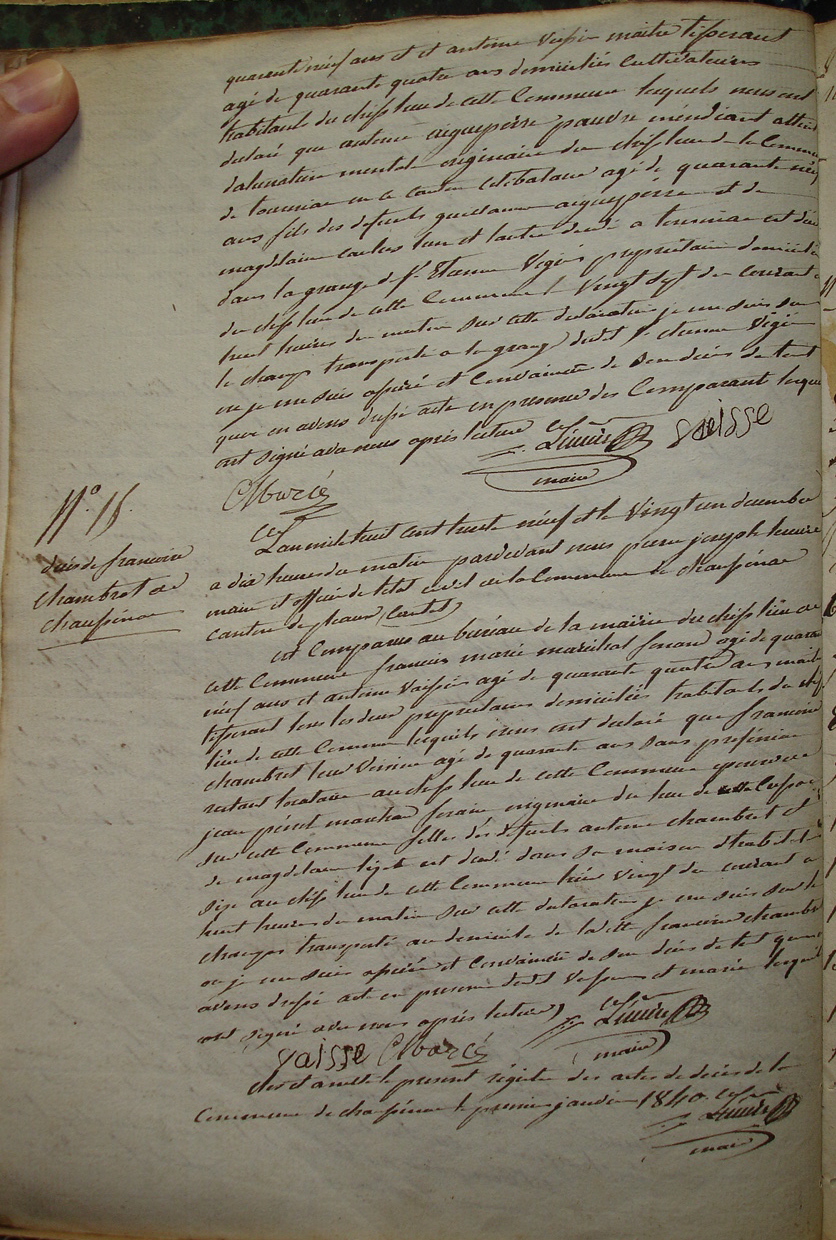 quarente neuf ans et et antoine Vaissié maitre tisserant
agé de quarante quatre ans domiciliés Cultivateurs
habitants du chef lieu de cette Commune lesquels nous ont
declaré que antoine aigueperse pauvre mendiant atteint
d'alienation mental originaire du chef lieu de la Commune
de tourniac en ce canton celibataire agé de quarante neuf
ans fils des defunts guillaume aigueperse et de
magdelaine l'un et l'autre décédé a tourniac est décédé
dans la grange de Sr Etienne Vigié propriétaire domicilié
du chef lieu de cette Commune le Vingt sept du Courant a
huit heures du matin sur cette declaration je me suis sur
le champ transporté a la grange dudit Sr etienne Vigié
ou je me suis assuré et Convaincu de son décès de tout
quoi en avons dressé acte en presence des Comparant lesquels
ont signé avec nous après lecture
Vaisse
maire
N° 15.
décès de françoise
chambret de
chaussenac
L'an mil huit cent trente neuf et le Vingt un decembre
a dix heures du matin pardevant nous pierre joseph
maire et officier de l'etat civil de la Commune de chaussenac
canton de pleaux (Cantal)
est Comparu au bureau de la mairie du chef lieu de
cette Commune françois marié maréchal ferrant agé de quarante
neuf ans et antoine Vaissié agé de quarante quatre ans maitre
tisserant tous les deux propriétaires domiciliés habitants du chef
lieu de cette Commune lesquels nous ont declaré que françoise
chambret leur Voisine agé de quarante ans sans profession
restant locataire au chef lieu de cette Commune epouse de
jean marchand forain originaire du lieu de
sur cette Commune fille des defunts antoine chambret et
de magdelaine est décédé dans sa maison d'habitation
sise au chef lieu de cette Commune hier vingt du courant a
huit heures du matin sur cette declaration je me suis sur le
champs transporté au domicile de ladite françoise chambret
ou je me suis assuré et Convaincu de son décès de tout quoi
avons dressé acte en presence dudit Vaissié et marié lesquels
ont signé avec nous après lecture
Vaisse
maire
clos et arreté le present régistre des actes de décès de la
Commune de chaussenac le premier janvier 1840.
maire